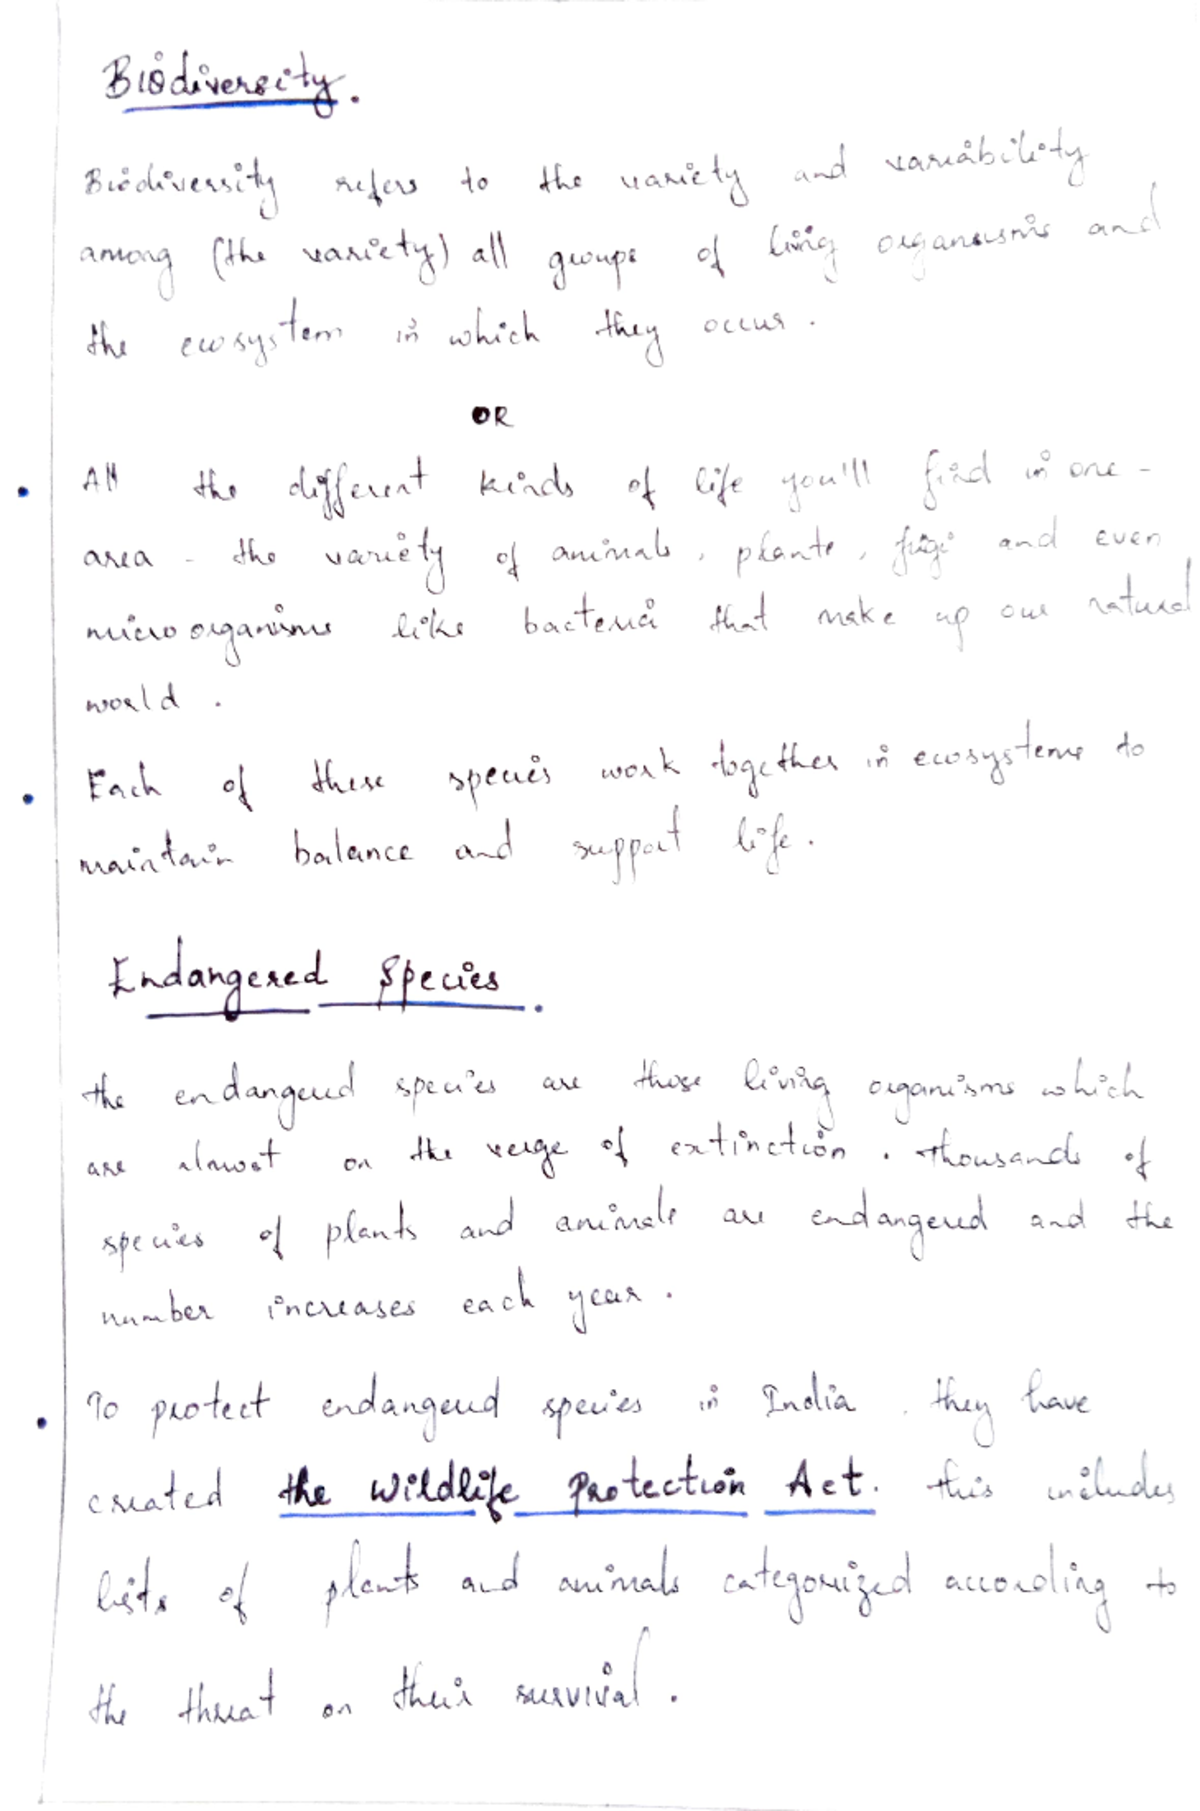 Biodiversity.
Biodiversity refers to the variety and variability
among (the variety) all groups of living organisms and
the ecosystem in which they occur.
OR
• All the different kinds of life you'll find in one-
area - the variety of animals, plants, fugi and even
microorganisms like bacteria that make up our natural
world.
• Each of these species work together in ecosystems to
maintain balance and support life.
Endangered Species.
the endangered species are those living organisms which
are almost on the verge of extinction. Thousands of
species of plants and animals are endangered and the
number increases each year.
• To protect endangered species in India, they have
created the Wildlife Protection Act. this includes
lists of plants and animals categorized according to
the threat on their survival.